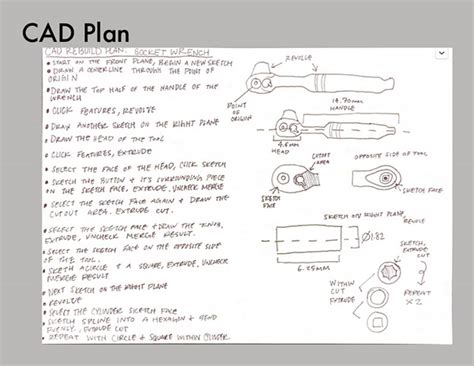 CAD Plan
CAD REBUILD PLAN: SOCKET WRENCH
• START ON THE FRONT PLANE, BEGIN A NEW SKETCH
• DRAW A CENTERLINE THROUGH THE POINT OF
ORIGIN
• DRAW THE TOP HALF OF THE HANDLE OF THE
WRENCH
• CLICK FEATURES, REVOLVE
• DRAW ANOTHER SKETCH ON THE RIGHT PLANE
• DRAW THE HEAD OF THE TOOL
• CLICK FEATURES, EXTRUDE
• SELECT THE FACE OF THE HEAD, CLICK SKETCH
• SKETCH THE BUTTON & IT'S SURROUNDING PIECE
ON THE SKETCH FACE, EXTRUDE, UNCHECK MERGE
• SELECT THE SKETCH FACE AGAIN & DRAW THE
CUTOUT AREA. EXTRUDE CUT.
• SELECT THE SKETCH FACE & DRAW THE KNOB,
EXTRUDE, UNCHECK MERGE RESULT.
• SELECT THE SKETCH FACE ON THE OPPOSITE SIDE
OF THE TOOL.
• SKETH A CIRCLE & A SQUARE, EXTRUDE, UNCHECK
MERGE RESULT
• NEXT SKETCH ON THE RIGHT PLANE
• REVOLVE
• SELECT THE CYLINDER SKETCH FACE
• SKETCH SPLINE INTO A HEXAGON & BEND
EVENLY, EXTRUDE CUT
• REPEAT WITH CIRCLE & SQUARE WITHIN CYLINDER
REVOLVE
POINT
OF
ORIGIN
14.70mm
HANDLE
4.6mm
HEAD
CUTOUT
AREA
OPPOSITE SIDE OF TOOL
SKETCH
FACE
SKETCH FACE
SKETCH ON RIGHT PLANE,
REVOLVE
Ø1.82
6.25mm
SKETCH,
EXTRUDE
CUT
WITHIN
CUT
EXTRUDE
REPEAT
X2